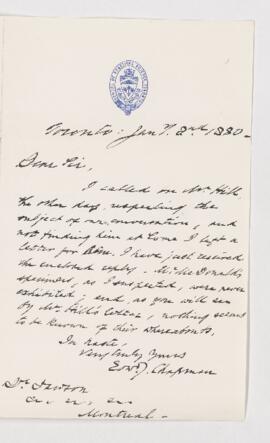 Toronto: Jany. 3rd. 1880 -
Dear Sir,
I called on Mr. Hill
the other day, respecting the
subject of our conversation, and
not finding him at home I left a
letter for him. I have just received
the enclosed reply. Mr. McDonald's
specimens, as I suspected, were never
exhibited; and, as you will see
by Mr. Hill's letter, nothing seems
to be known of their whereabouts.
In haste,
Very truly yours
Edw. J. Chapman
Dr. Dawson
Montreal -